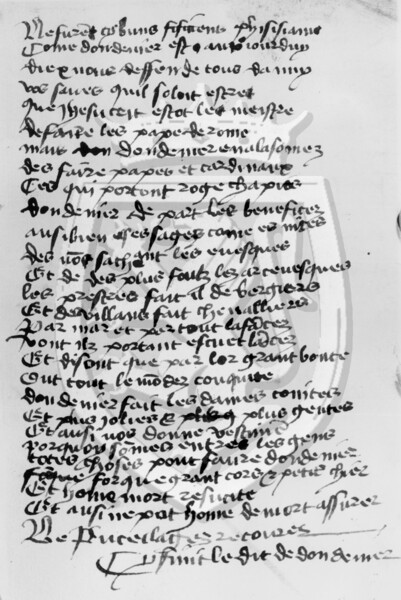 Ne furent cybuns fisiciens phisisians
Come don denier est aut jourduy
diex nous deffende tous danuy
vos saves quil soloit estre
que Jhesucrit estot les meistre
de faire les pape de rome
mais don denier en a la somez
des faire papes et cardinaux
Ces qui portont roge chapiaus
don denier de part les beneficez
ausi bien es sages come es nices
des nos sachant les evesques
Et de des plus foulz les arcevesques
les prestres fait il de bergiers
Et des villans fait chevalliers
Par mar et per tout la
Vont ilz portant escuet lancez
Et disont que par lor grant bonte
Ont tout le monder conquite
don denier fait les dames cointes
Et plus jolies et plus gentes
Et ausi nos donne
porquoy somes entres les gens
totes choses pout faire don denier
forque grant cors petis
Et home mort resucite
Et ausi ne pot home de mort assurer
Ne pucellages recovrer
Cy finit le dit de don denier